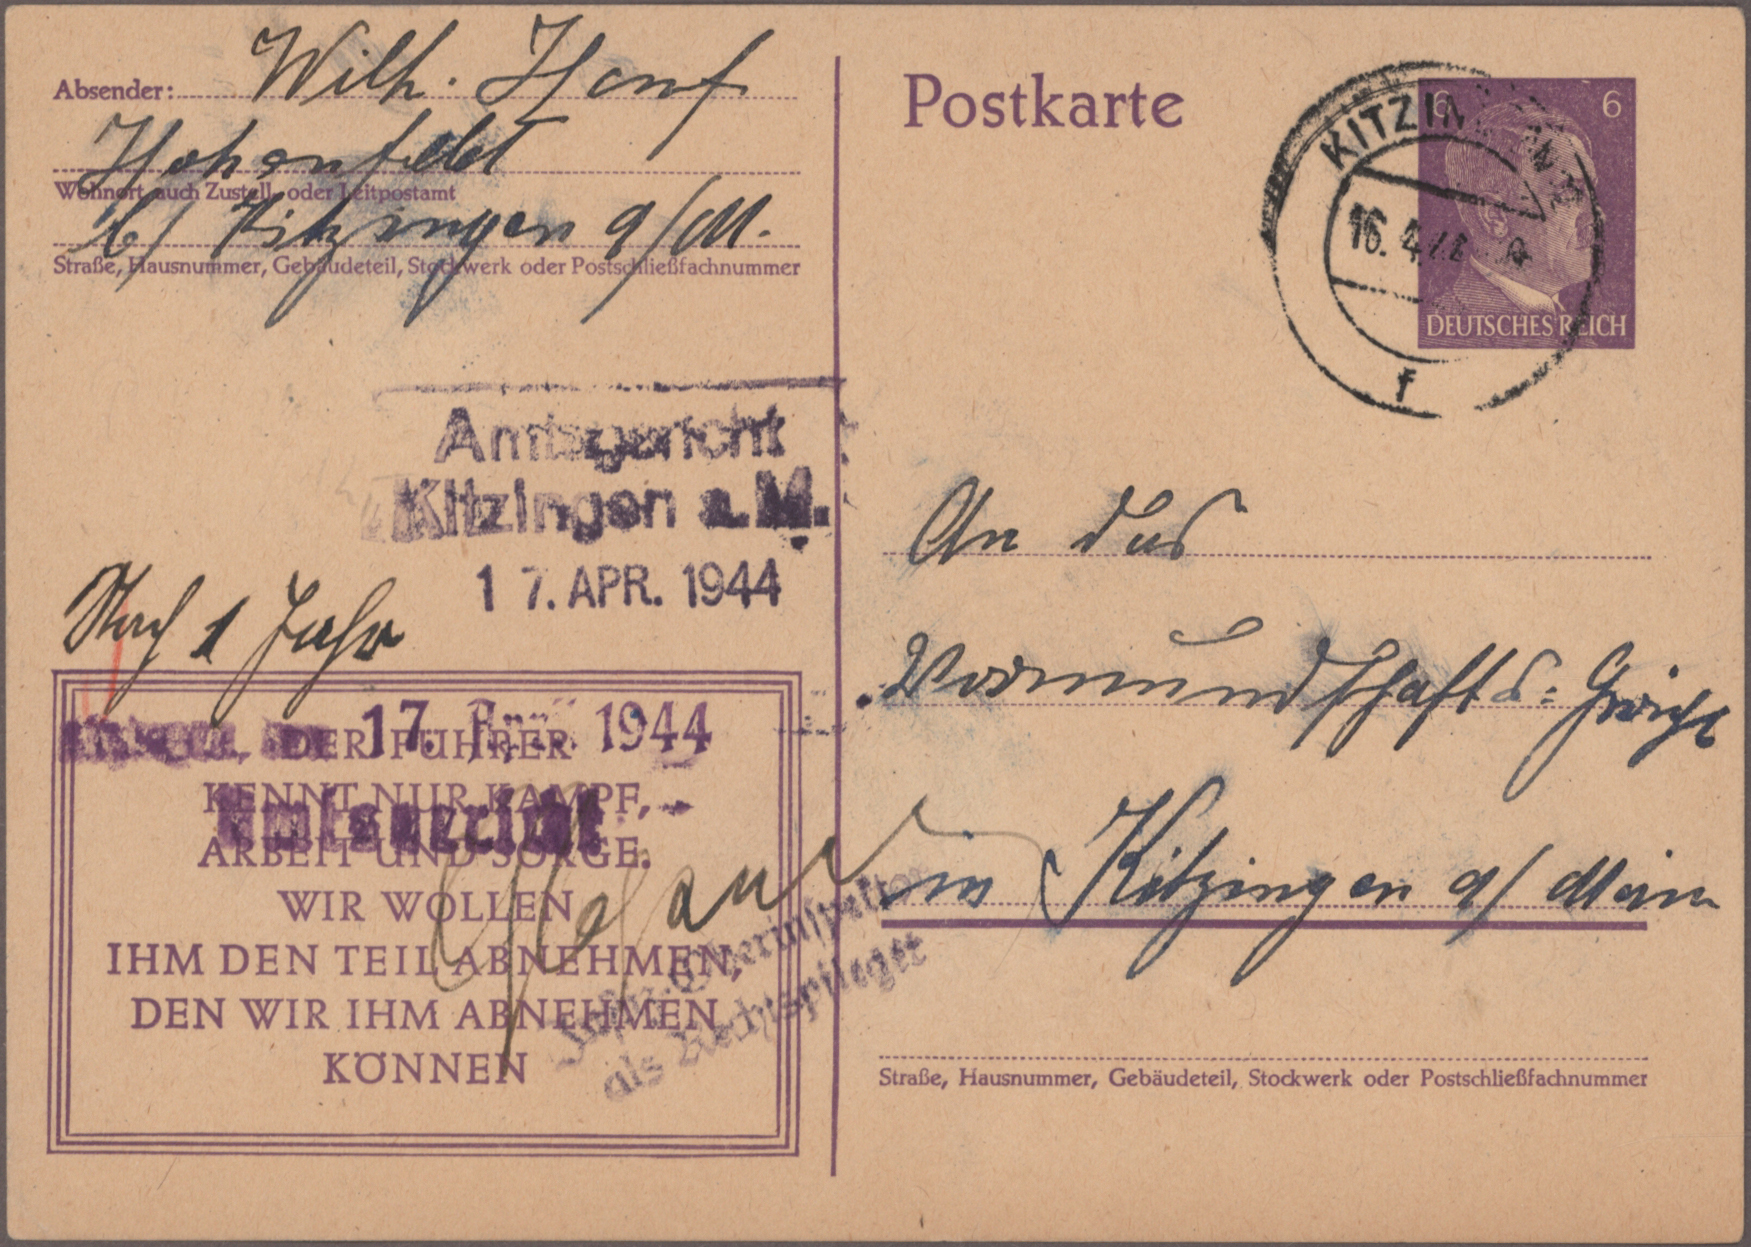 Absender: Wilh. Hanf
Hohenfeld
Wohnort, auch Zustell- oder Leitpostamt
b/ Kitzingen a/M.
Straße, Hausnummer, Gebäudeteil, Stockwerk oder Postschließfachnummer
Postkarte
6 6
DEUTSCHES REICH
KITZIN
16. 4.
f
Amtsgericht
Kitzingen a.M.
17. APR. 1944
Nach 1 Jahr
17. 1944
Amtsgericht
DER FÜHRER
KENNT NUR KAMPF,
ARBEIT UND SORGE.
WIR WOLLEN
IHM DEN TEIL ABNEHMEN,
DEN WIR IHM ABNEHMEN
KÖNNEN
Justiz-Oberinspektor
als Rechtspfleger
An das
Vormundschafts-Gericht
in Kitzingen a/Main
Straße, Hausnummer, Gebäudeteil, Stockwerk oder Postschließfachnummer